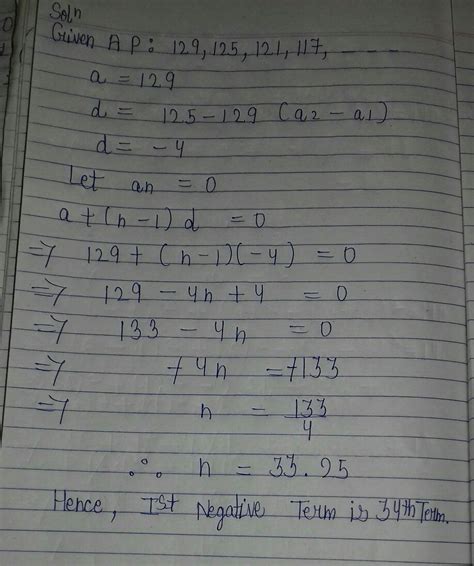 Soln
Given AP: 129, 125, 121, 117, ----
a = 129
d = 125-129 (a2-a1)
d = -4
Let an = 0
a+(n-1)d = 0
=7 129+(n-1)(-4) = 0
=7 129 - 4n + 4 = 0
=7 133 - 4n = 0
=7 +4n = +133
=7 n = 133/4
∴ n = 33.25
Hence, Ist Negative Term is 34th Term.